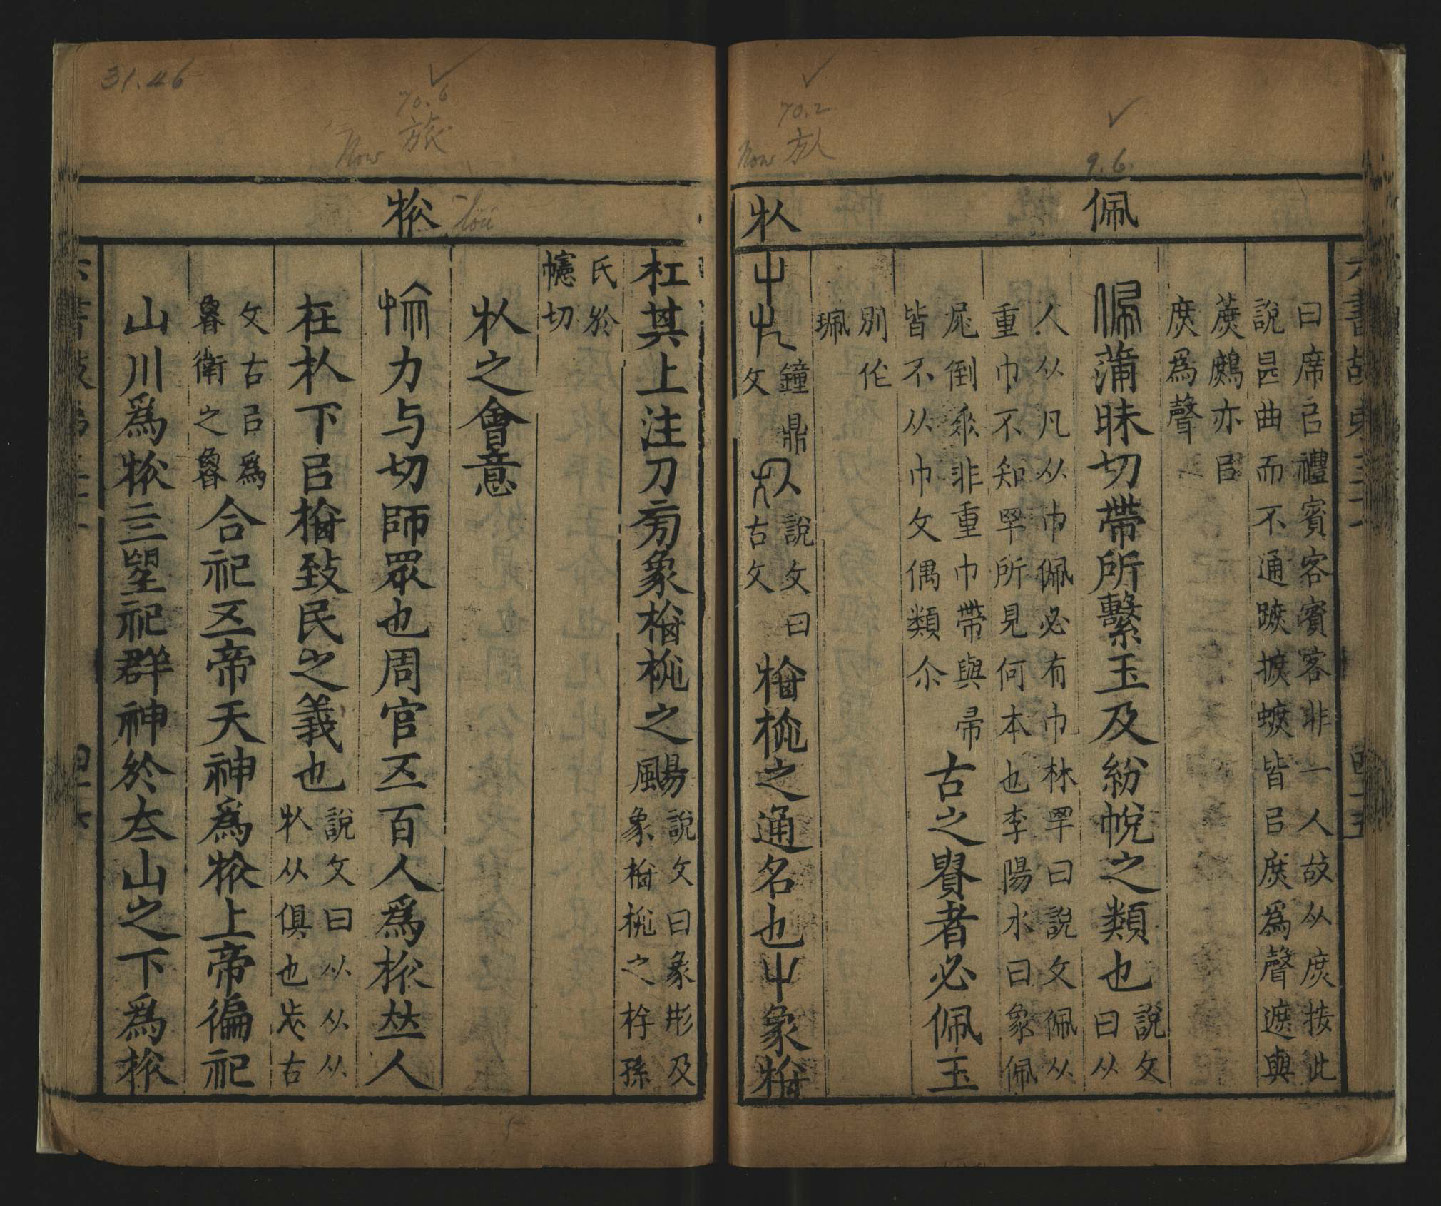 31.46
70.6
旅
Now
70.2
㫃
Now
9.6
佩
㫃
曰席㠯禮賓客賓客非一人故从庶按此
說昆曲而不通蹠摭蟅皆㠯庶爲聲遮與
蔗鷓亦㠯
庶爲聲
佩蒲昧切帶所繫玉及紛帨之類也
說文
曰从
人从凡从巾佩必有巾林罕曰說文佩从
重巾不知罕所見何本也李陽冰曰象佩
𡲰倒𠂢非重巾帶與帚
皆不从巾文偶類尒
古之君者必佩玉
別作
珮
鐘鼎
文
說文曰
古文
旝旐之通名也屮象旝
杠其上注刀𠛬象旝旐之
賜
風
說文曰象形及
象旝旐之㳺孫
氏於
幰切
㫃之會意
旅力与切師眾也周官五百人爲旅𠈌人
在㫃下㠯旝致民之義也
說文曰从从从
㫃从俱也𣥏古
文古㠯爲
魯衛之魯
合祀五帝天神爲旅上帝徧祀
山川爲旅三望祀群神於夳山之下爲旅